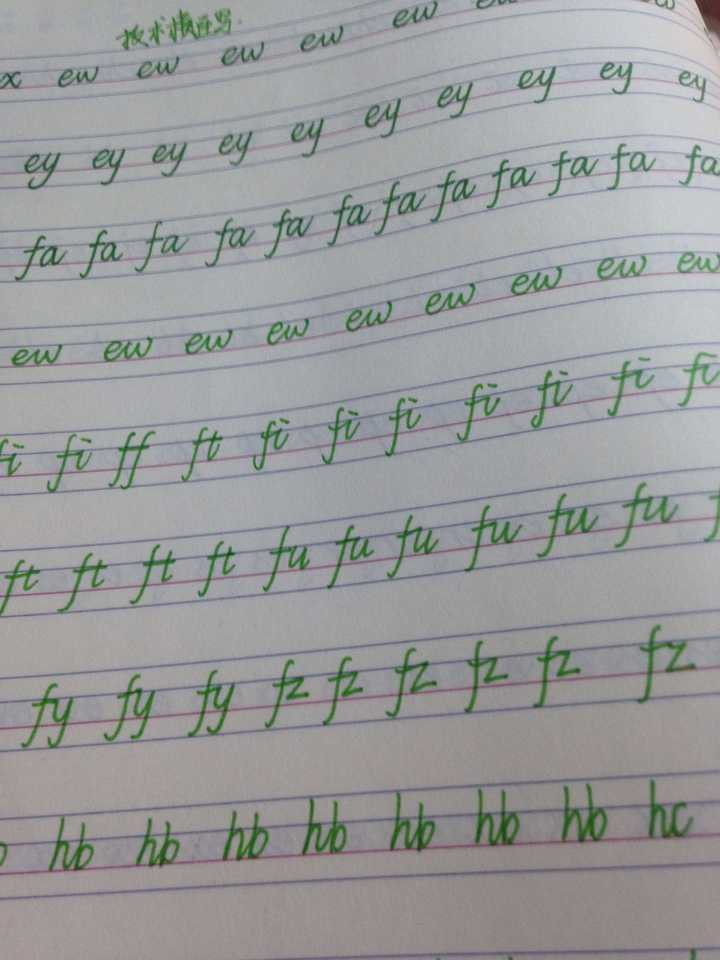 按求情还写.
x ew ew ew ew ew
ey ey ey ey ey ey ey ey ey ey
fa fa fa fa fa fa fa fa fa fa fa fa
ew ew ew ew ew ew ew ew ew
fi fi ff ft fi fi fi fi fi fi fi
ft ft ft ft fu fu fu fu fu fu
fy fy fy fz fz fz fz fz fz
hb hb hb hb hb hb hb hc